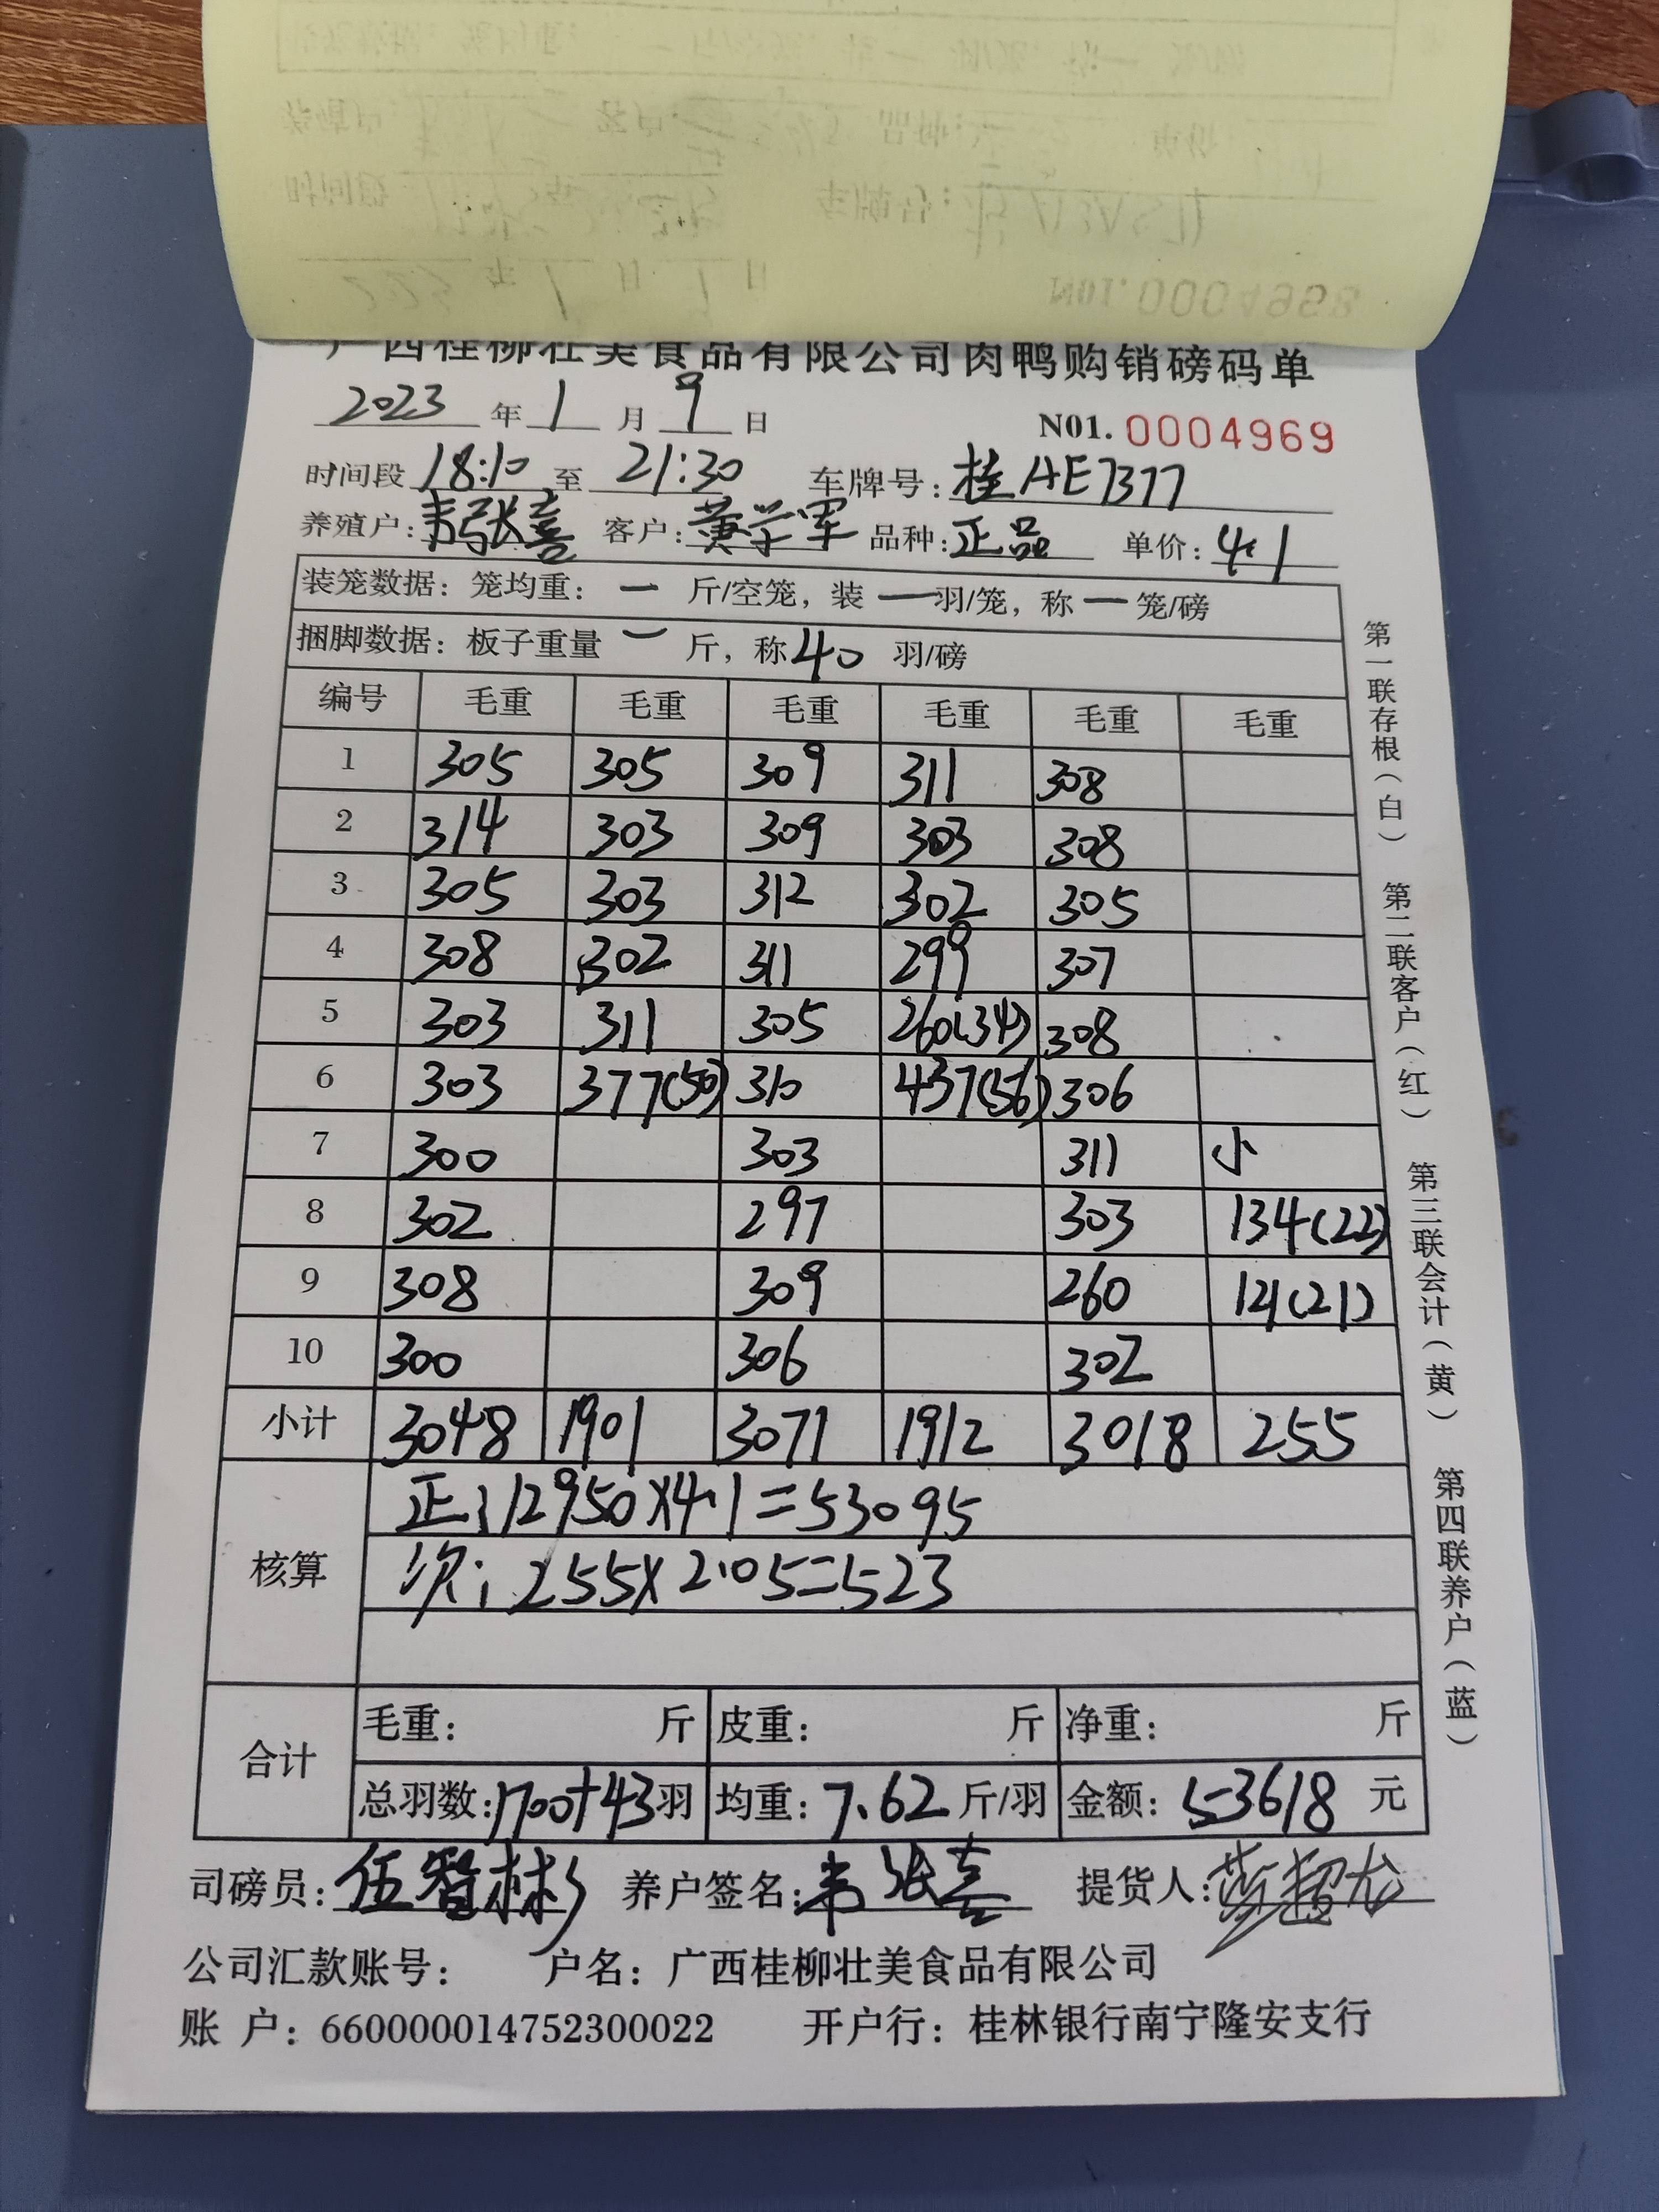 广西桂柳壮美食品有限公司肉鸭购销磅码单
2023 年 1 月 9 日
N01. 0004969
时间段 18:10 至 21:30 车牌号: 桂AE7377
养殖户: 韦张喜 客户: 黄学军 品种: 正品 单价: 4.1
装笼数据: 笼均重: 一 斤/空笼, 装 一 羽/笼, 称 一 笼/磅
捆脚数据: 板子重量 一 斤, 称 40 羽/磅
编号 毛重 毛重 毛重 毛重 毛重 毛重
1 305 305 309 311 308
2 314 303 309 303 308
3 305 303 312 302 305
4 308 302 311 299 307
5 303 311 305 260(34) 308
6 303 377(50) 310 437(56) 306
7 300 303 311 小
8 302 297 303 134(22)
9 308 309 260 121(21)
10 300 306 302
小计 3048 1901 3071 1912 3018 255
核算
正: 12950×4.1=53095
次: 255×2.05=523
合计
毛重: 斤 皮重: 斤 净重: 斤
总羽数: 1700+43 羽 均重: 7.62 斤/羽 金额: 53618 元
司磅员: 伍智彬 养户签名: 韦张喜 提货人:
公司汇款账号: 户名: 广西桂柳壮美食品有限公司
账 户: 660000014752300022 开户行: 桂林银行南宁隆安支行
第一联存根(白) 第二联客户(红) 第三联会计(黄) 第四联养户(蓝)